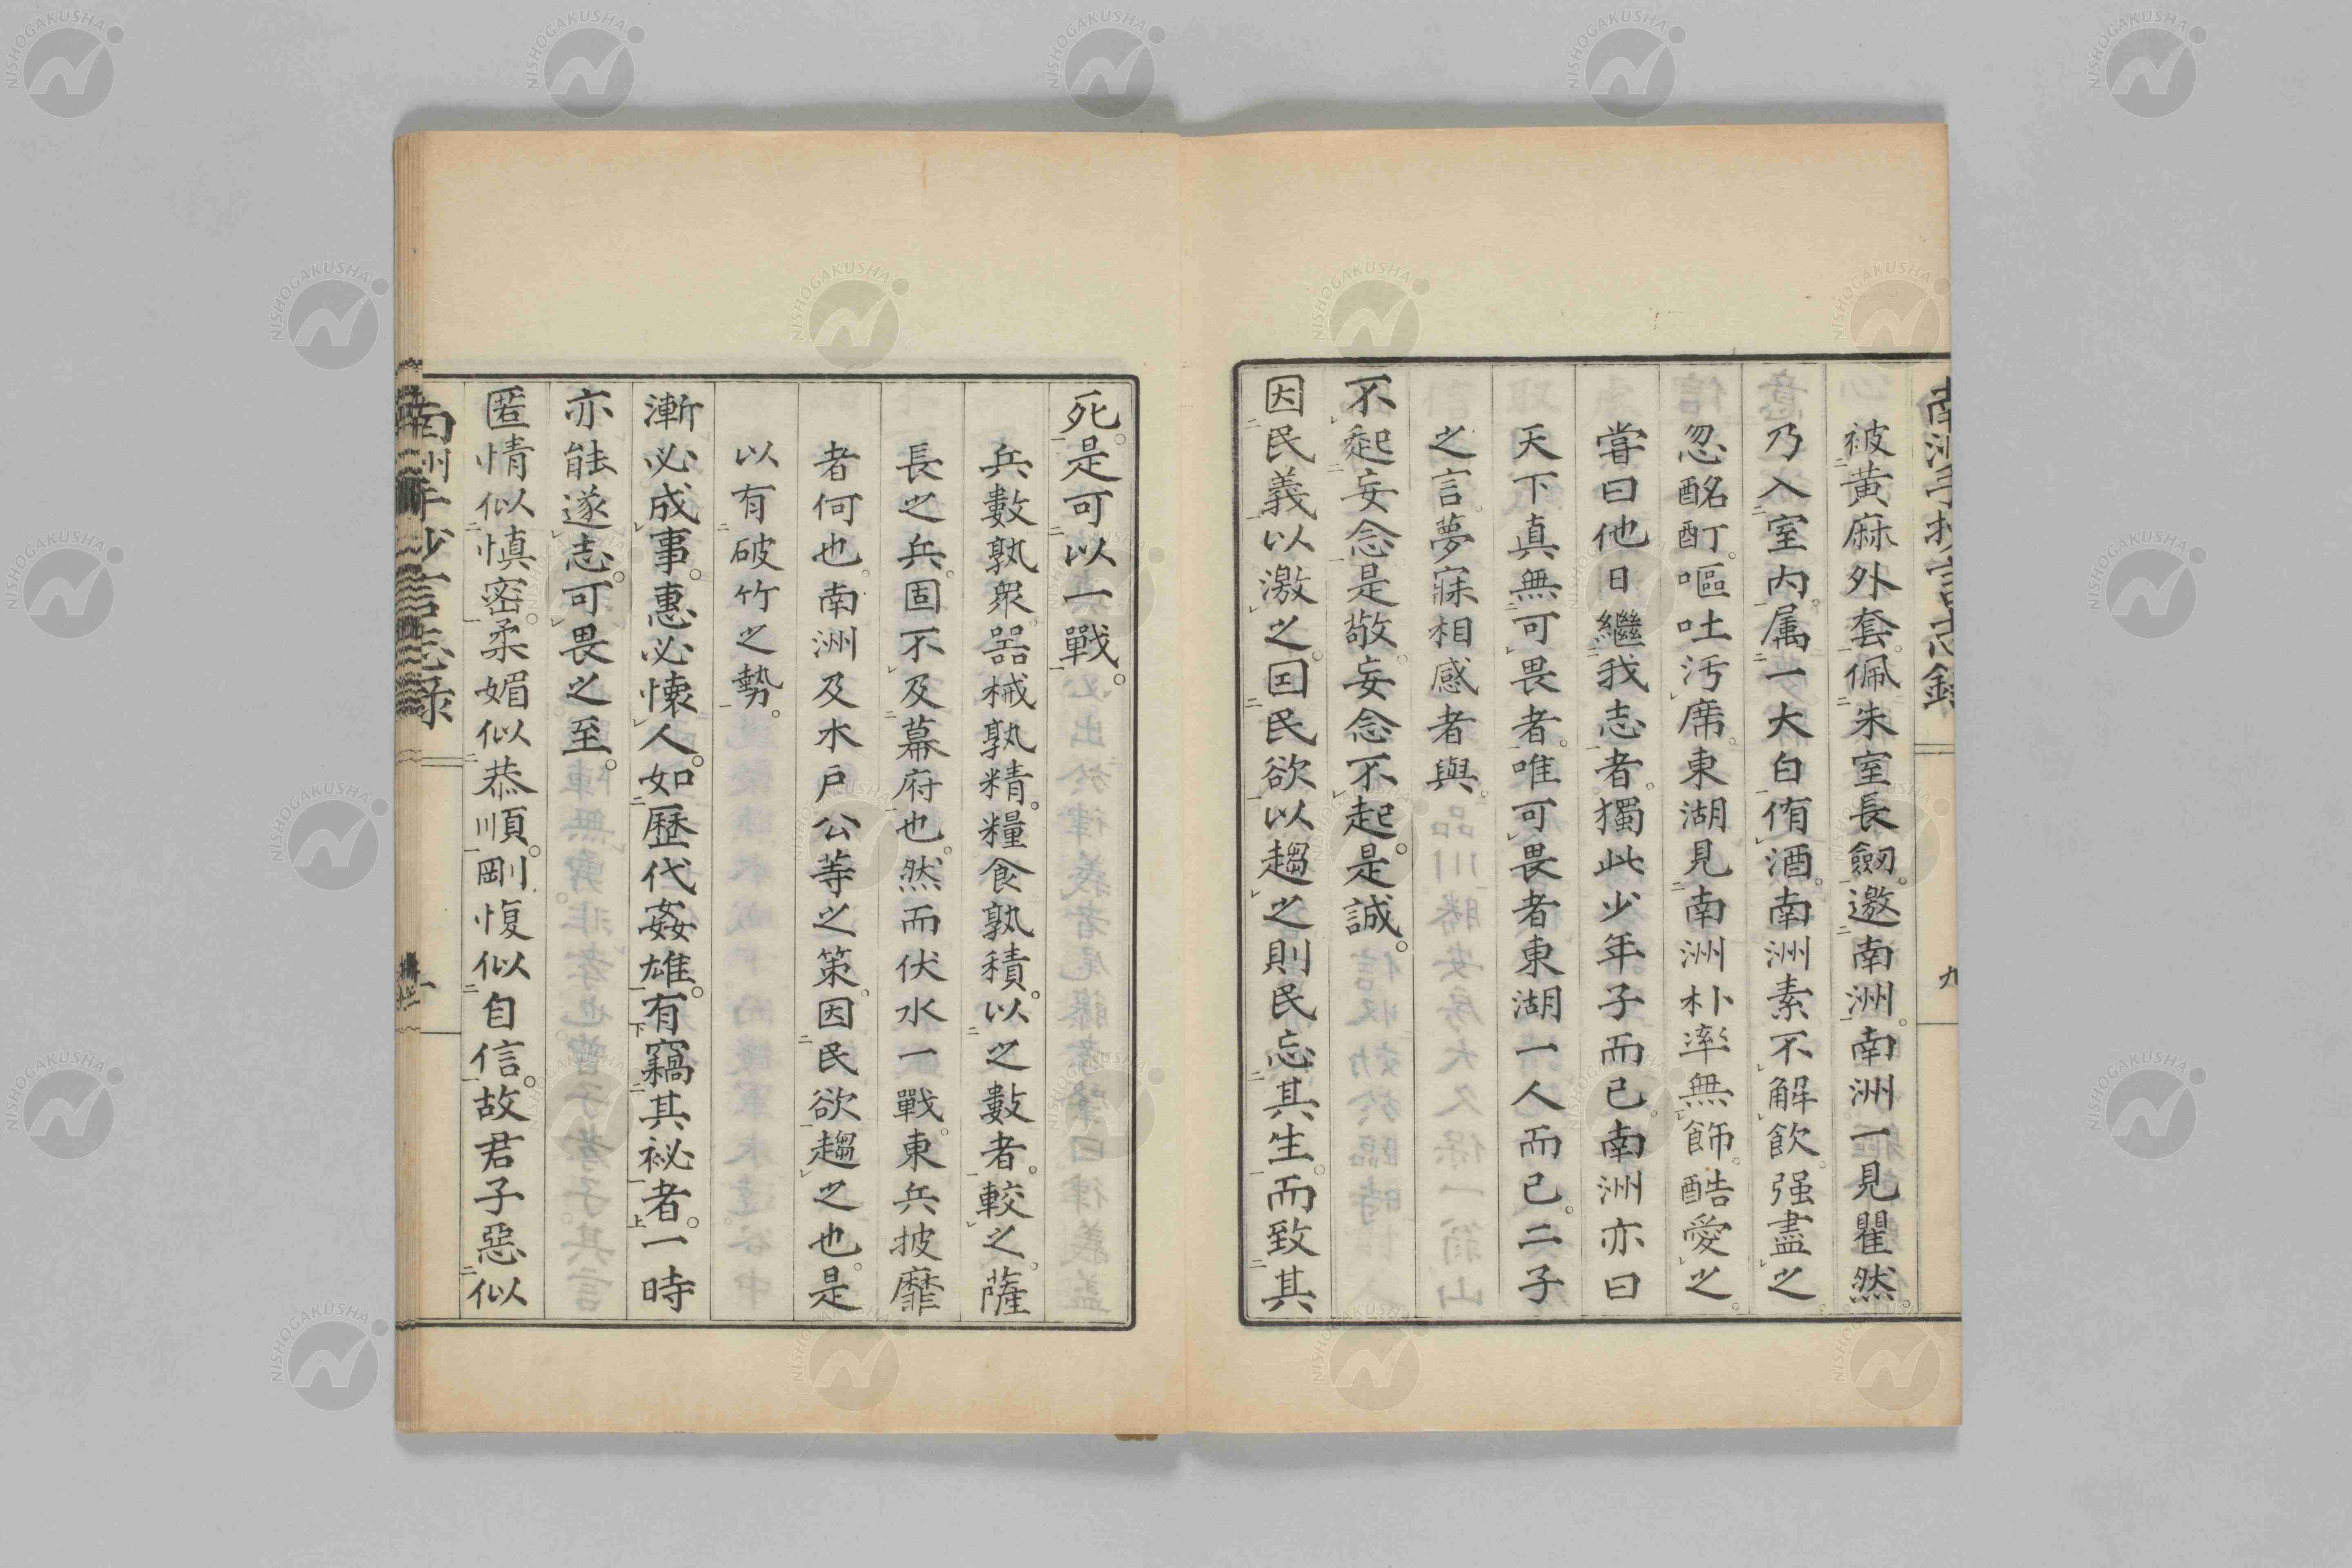 南洲手抄言志錄
九
被黃麻外套。佩朱室長劔。邀南洲。南洲一見瞿然。
乃入室內。属一大白侑酒。南洲素不解飲。强盡之。
忽酩酊。嘔吐汚席。東湖見南洲朴率無飾。酷愛之。
嘗曰他日繼我志者。獨此少年子而已。南洲亦曰
天下真無可畏者。唯可畏者東湖一人而已。二子
之言。夢寐相感者與。
不起妄念是敬。妄念不起。是誠。
因民義以激之。因民欲以趨之則民忘其生。而致其
死。是可以一戰。
兵數孰衆。器械孰精。糧食孰積。以之數者。較之。薩
長之兵。固不及幕府也。然而伏水一戰。東兵披靡
者何也。南洲及木戶公等之策。因民欲趨之也。是
以有破竹之勢。
漸必成事。惠必懷人。如歷代姦雄。有竊其祕者。一時
亦能遂志。可畏之至。
匿情似慎密。柔媚似恭順。剛愎似自信。故君子惡似
南洲手抄言志錄